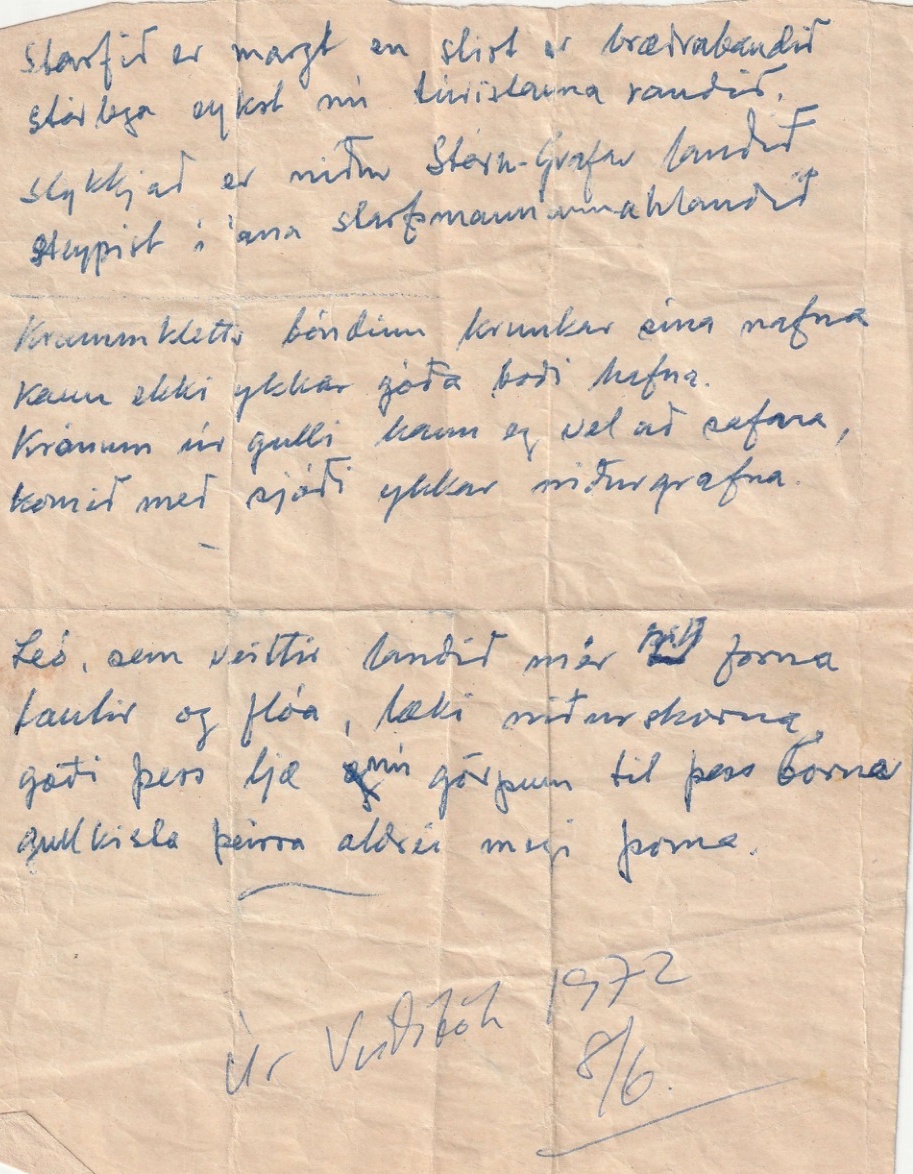 Starfið er margt en stirt er bræðrabandið
stórlega eykst nú túristanna randið.
Stykkjað er niður Stóru-Grafar landið
steypist í ána starfsmannannahlandið
Krummkletts bóndinn krunkar sína nafna
kann ekki ykkar góða boði hafna.
Krónum úr gulli kann eg vel að safna,
komið með sjóði ykkar niðurgrafna.
Leó, sem veittir landið mér forna
lautir og flóa, læki niðurskorna
gæði þess ljæ nú görpum til þess borna
gullkista þeirra aldrei megi þorna.
Úr Veiðibók 1972
8/6.